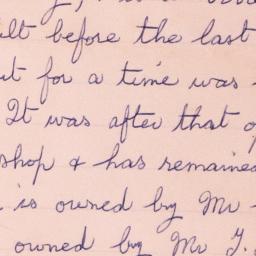 before the last
for a time was
It was after that
shop & has remained
is owned by Mr
owned by Mr J.